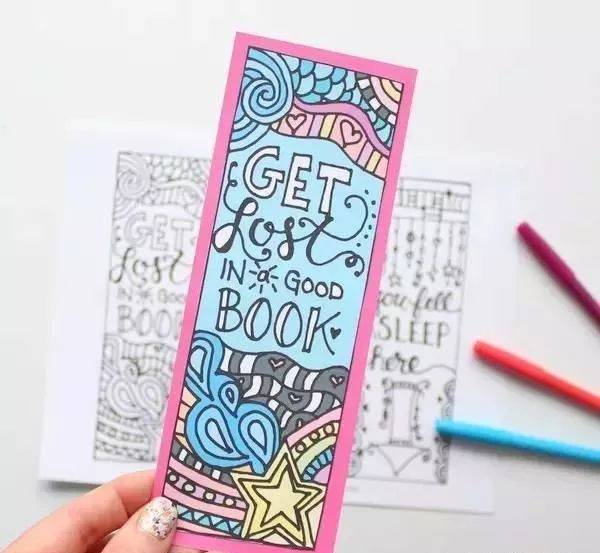 GET
Lost
IN a GOOD
BOOK
GET
Lost
IN a GOO
BOO
you fell
SLEEP
here